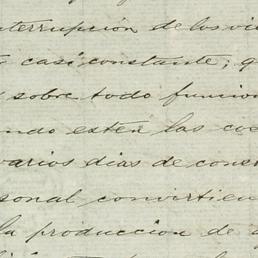 interrupción de los vi
casi constante; q
sobre todo funcion
ndo estén las co
varios dias de cons
sonal convirtien
la produccion de a